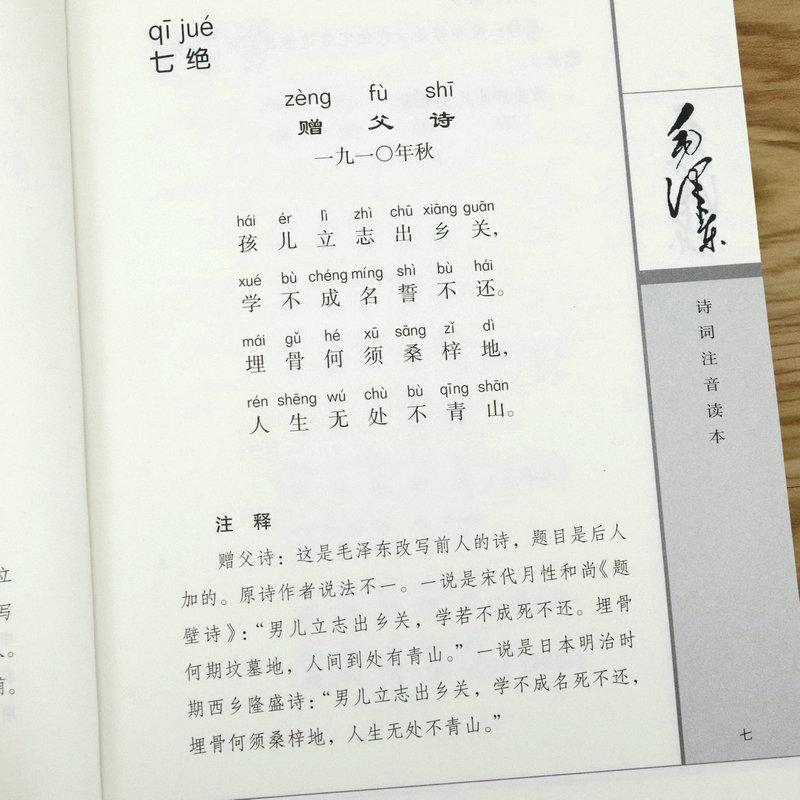 qī jué
七 绝
zèng fù shī
赠 父 诗
一九一〇年秋
hái ér lì zhì chū xiāng guān
孩 儿 立 志 出 乡 关,
xué bù chéng míng shì bù hái
学 不 成 名 誓 不 还。
mái gǔ hé xū sāng zǐ dì
埋 骨 何 须 桑 梓 地,
rén shēng wú chù bù qīng shān
人 生 无 处 不 青 山。
注 释
赠父诗：这是毛泽东改写前人的诗，题目是后人
加的。原诗作者说法不一。一说是宋代月性和尚《题
壁诗》：“男儿立志出乡关，学若不成死不还。埋骨
何期坟墓地，人间到处有青山。”一说是日本明治时
期西乡隆盛诗：“男儿立志出乡关，学不成名死不还，
埋骨何须桑梓地，人生无处不青山。”
毛泽东
诗词注音读本
七
立
写
。